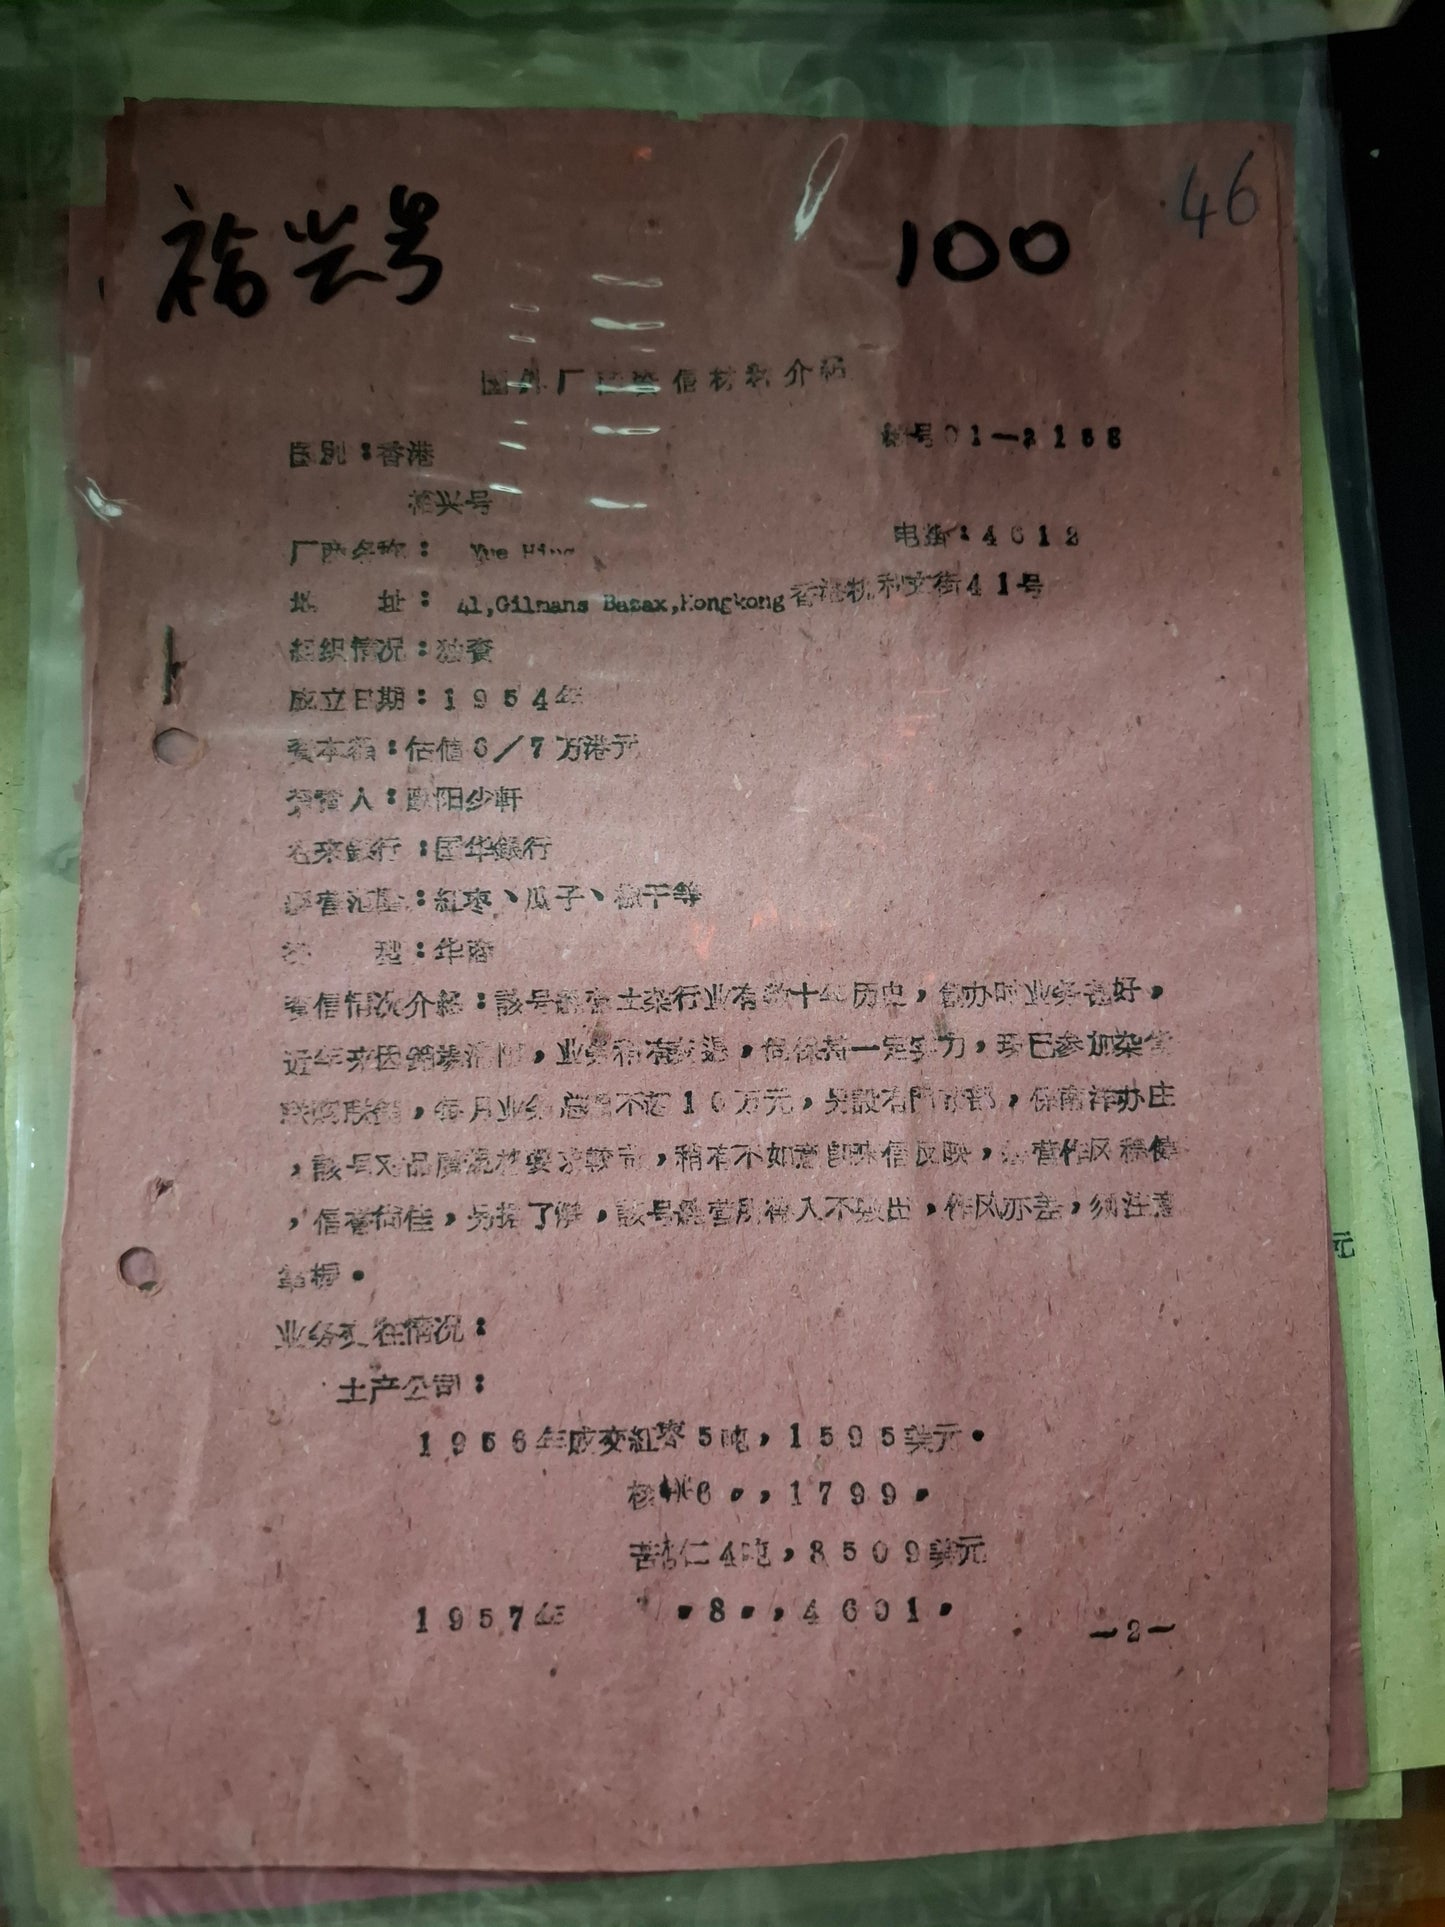 裕兴号
100
46
国外厂商资信材料介绍
国别：香港
编号01—2158
裕兴号
厂商名称： Yue Hing
电掛：4612
地 址： 41,Gilmans Bazax,Hongkong香港机利文街41号
組织情况：独資
成立日期：1954年
資本額：估值6/7万港元
負責人：欧阳少軒
往来銀行：国华銀行
經营范圍：紅枣、瓜子、椒干等
类 型：华商
資信情况介紹：該号經营土杂行业有数十年历史，創办时业务甚好，
近年来因銷場滯阻，业务稍有衰退，但保持一定实力，現已参加杂貨
联购联銷，每月业务 不过10万元，另設有門市部，係南洋办庄
，該号对品質規格要求較高，稍有不如意即殊信反映，經营作风稳健
，信誉尚佳，另据了解，該号經营所得入不敷出，作风亦差，須注意
掌握。
业务交往情况：
土产公司：
1956年成交紅枣5吨，1595美元。
核桃6〃，1799〃
苦杏仁4吨，3509美元
1957年 〃8〃，4601〃
—2—
元